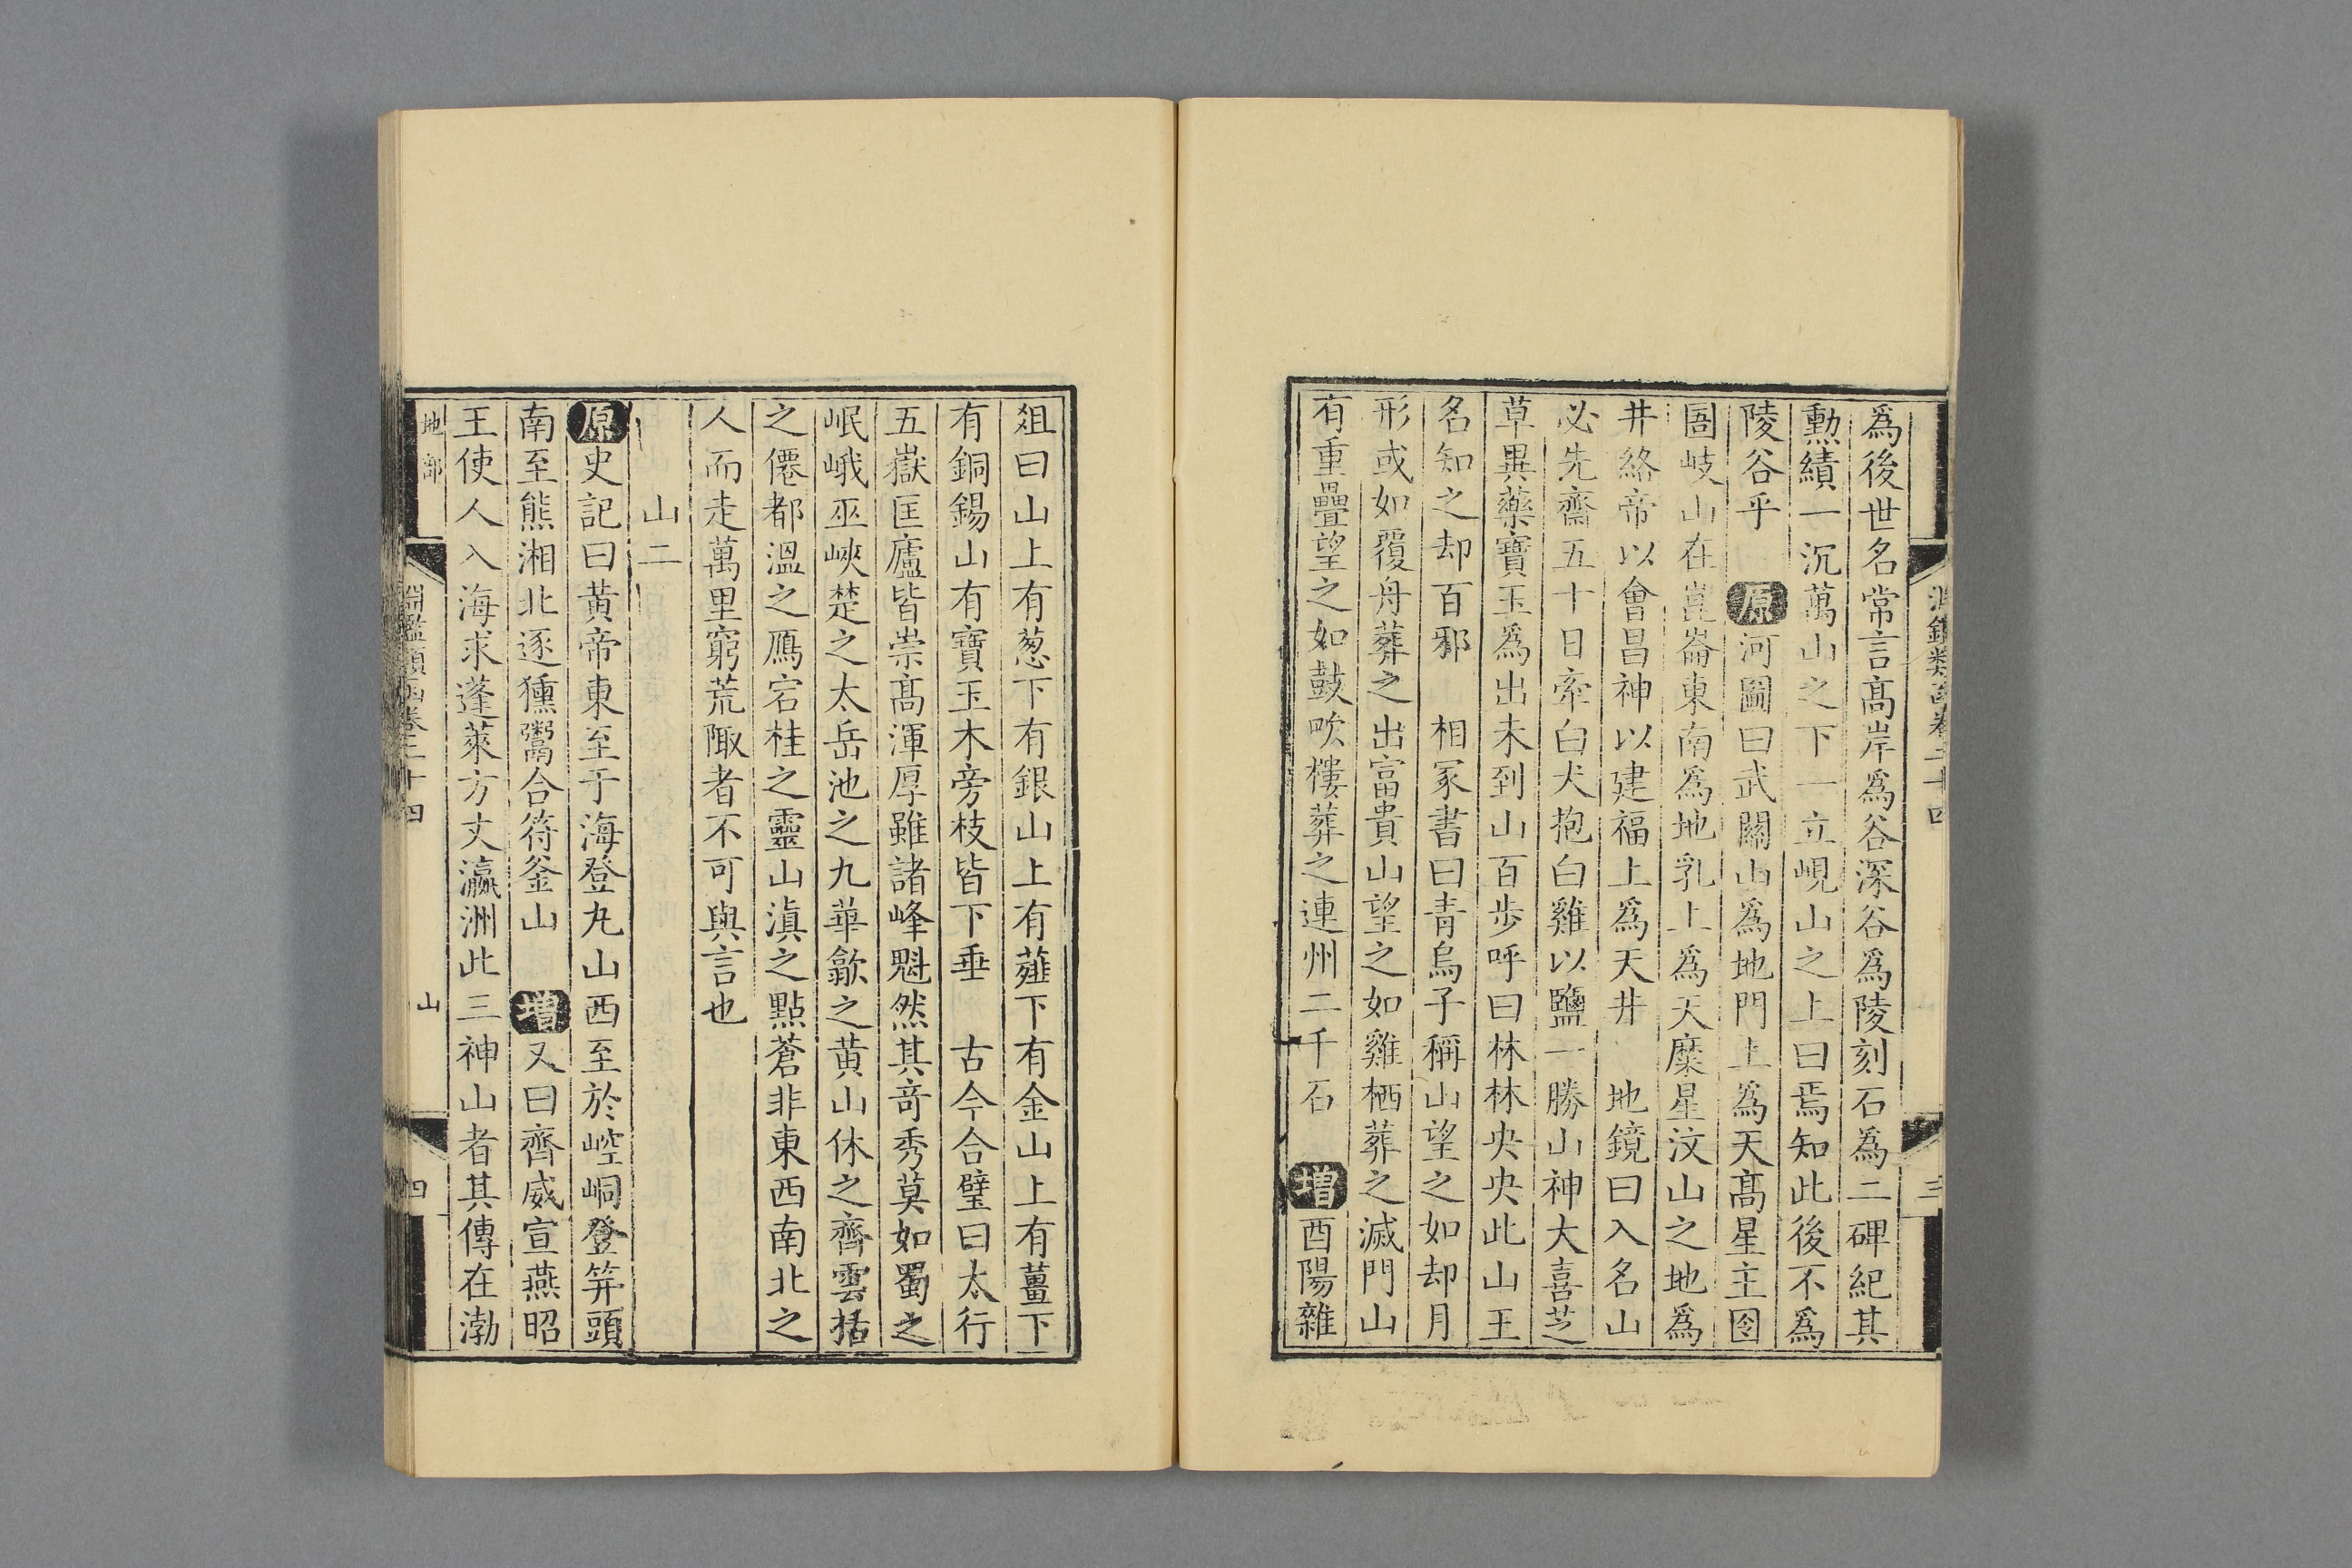 爲後世名常言髙岸爲谷深谷爲陵刻石爲二碑紀其
勳績一沉萬山之下一立峴山之上曰焉知此後不爲
陵谷乎 原河圖曰武關山爲地門上爲天髙星主囹
圄岐山在崑崙東南爲地乳上爲天糜星汶山之地爲
井絡帝以會昌神以建福上爲天井 地鏡曰入名山
必先齋五十日牽白犬抱白雞以鹽一勝山神大喜芝
草異藥寶玉爲出未到山百步呼曰林林央央此山王
名知之却百邪 相冢書曰青烏子稱山望之如却月
形或如覆舟葬之出富貴山望之如雞栖葬之滅門山
有重疊望之如鼓吹樓葬之連州二千石 増酉陽雜
俎曰山上有葱下有銀山上有薤下有金山上有薑下
有銅錫山有寶玉木旁枝皆下垂 古今合璧曰太行
五嶽匡廬皆崇髙渾厚雖諸峰魁然其竒秀莫如蜀之
岷峨巫峽楚之太岳池之九華歙之黄山休之齊雲括
之僊都溫之鴈宕桂之靈山滇之點蒼非東西南北之
人而走萬里窮荒陬者不可與言也
山二
原史記曰黃帝東至于海登丸山西至於崆峒登笄頭
南至熊湘北逐獯鬻合符釜山 増又曰齊威宣燕昭
王使人入海求蓬萊方丈瀛洲此三神山者其傳在渤
地部 淵鑑類函卷二十四 山 四